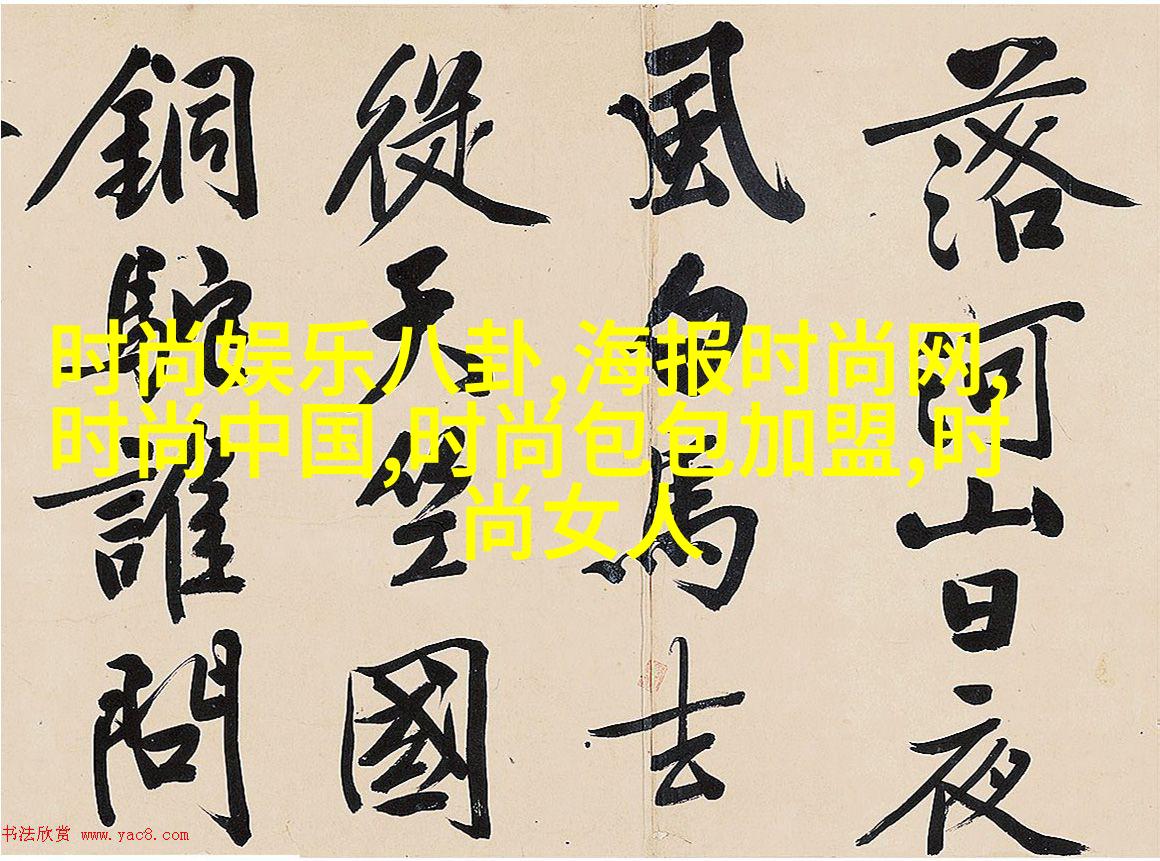 落河山日夜
風白馬去
從天竺國
銅駝誰問
时尚娱乐八卦,海报时尚网,
时尚中国,时尚包包加盟,时
尚女人
书法欣赏 www.yac8.com